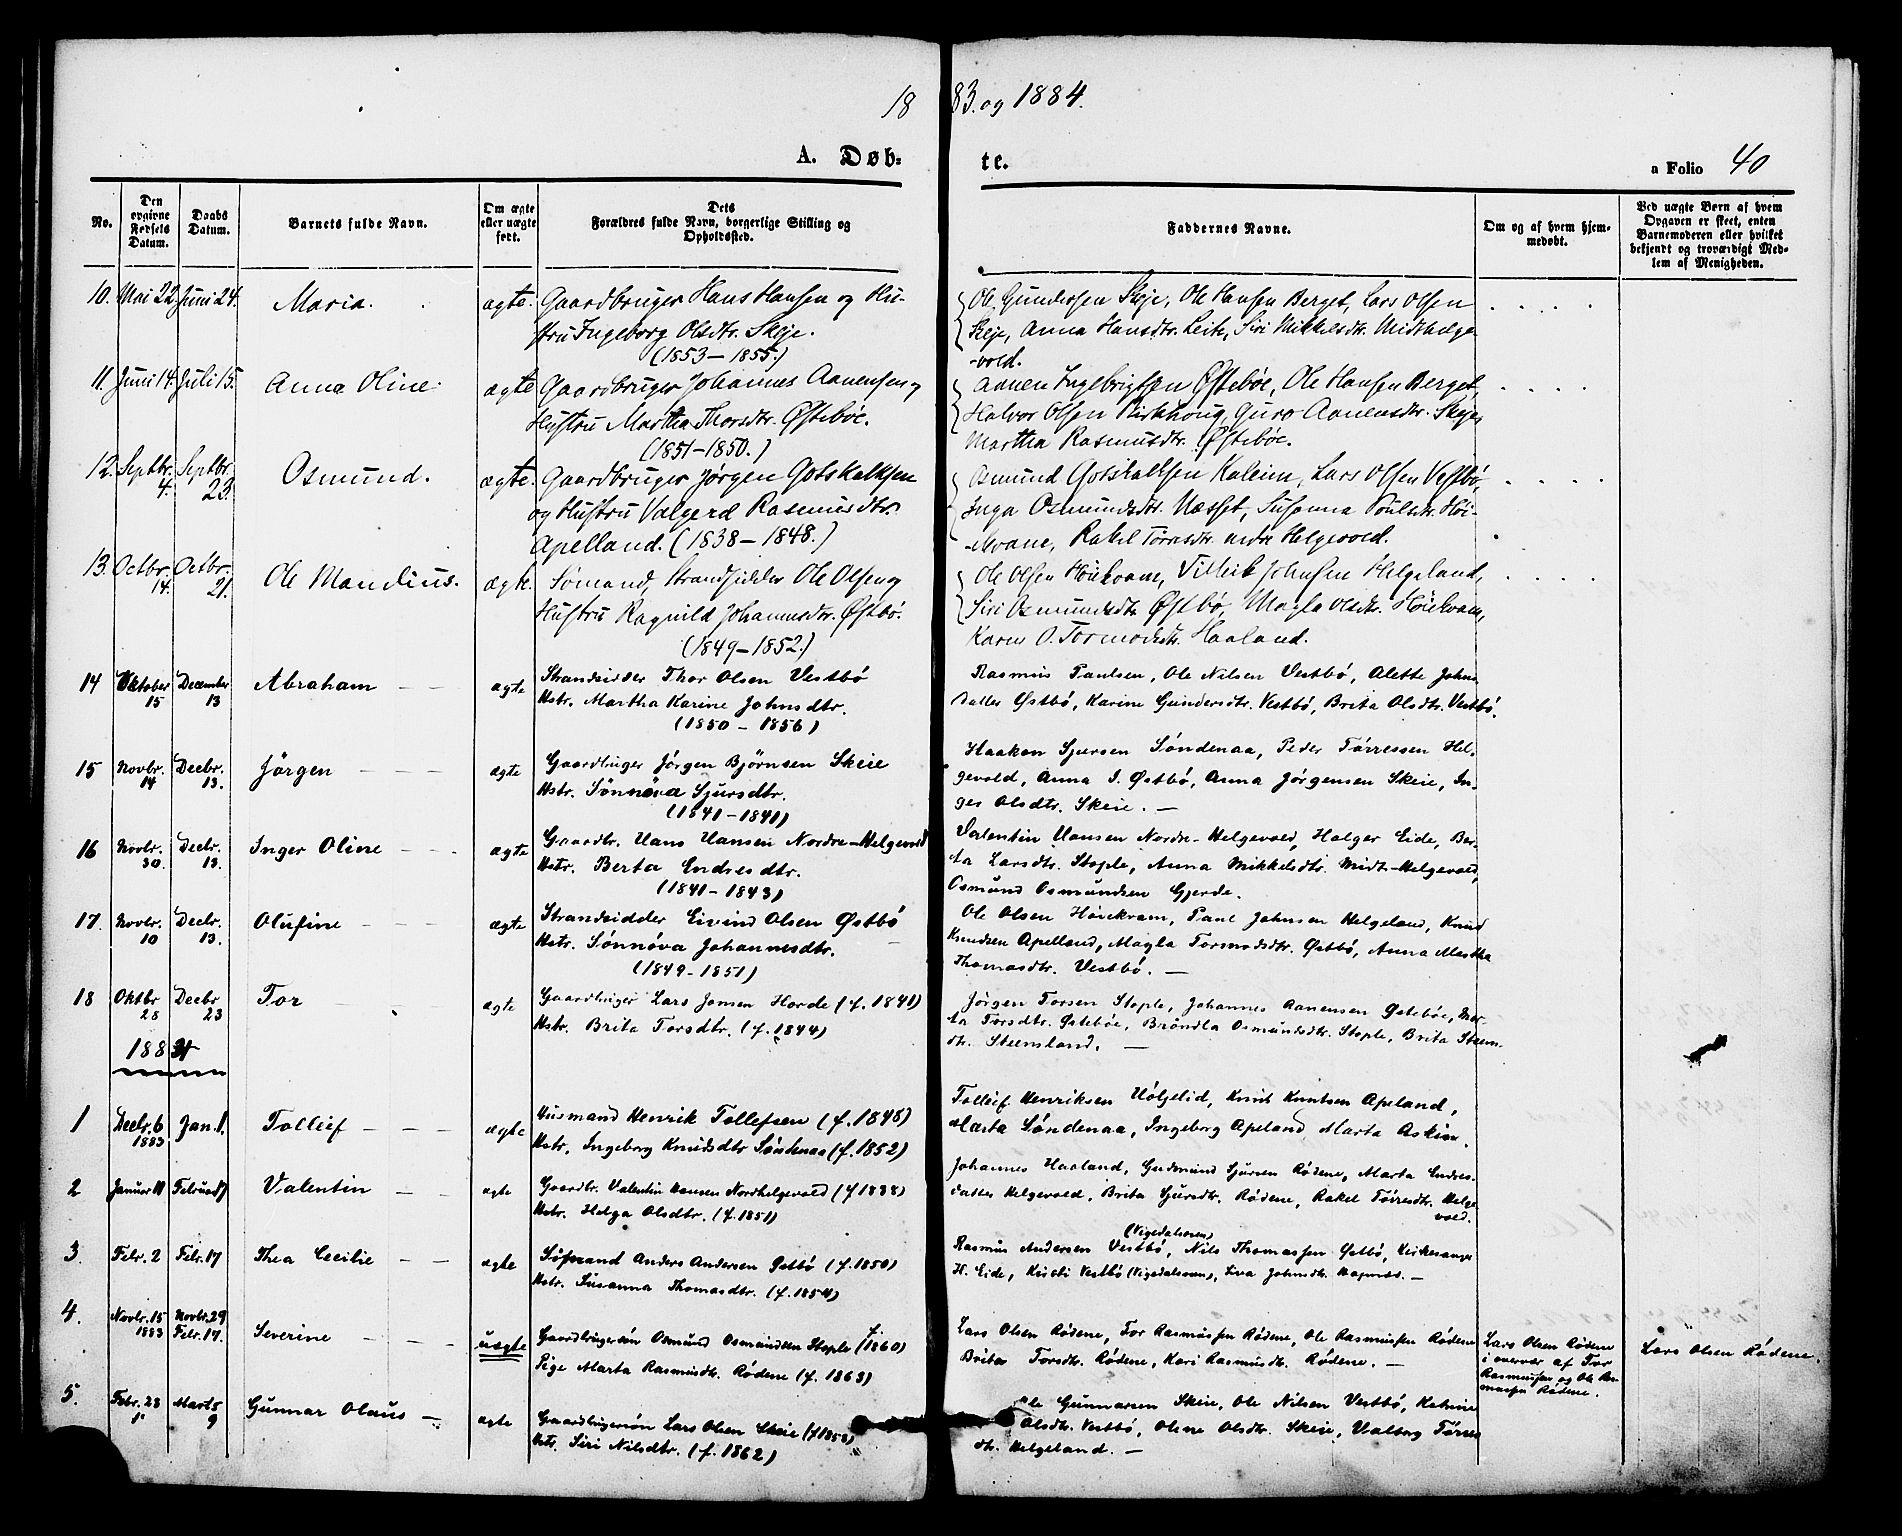 1883. og 1884.
A. Døb- te.
a Folio 40
No.
Den opgivne Fødsels Datum.
Daabs Datum.
Barnets fulde Navn.
Om ægte eller uægte født.
Dets Forældres fulde Navn, borgerlige Stilling og Opholdssted.
Faddernes Navne.
Om og af hvem hjemmedøbt.
Ved uægte Børn af hvem Opgaven er skeet, enten Barnemoderen eller hvilket bekjendt og troværdigt Medlem af Menigheden.
10. Mai 22. Juni 24. Maria. ægte. Gaardbruger Hans Hansen og Hu-
stru Ingeborg Olsdtr. Skeje.
(1853 – 1855.)
Ole Gundersen Skeje, Ole Hansen Berget, Lars Olsen
Skeje, Anna Hansdtr. Leite, Siri Mikkelsdtr. Midthelge-
-vold.
11. Juni 14. Juli 15. Anna Oline. ægte Gaardbruger Johannes Aanensen og
Hustru Martha Thorsdtr. Østebøe.
(1851–1850.)
Aanen Ingebrigtsen Østebøe, Ole Hansen Berget,
Halvor Olsen Kirkhoug, Guro Aanensdtr. Skeje,
Martha Rasmusdtr. Østebøe.
12. Septbr. 4. Septbr. 23. Osmund. ægte. Gaardbruger Jørgen Gotskalksen
og Hustru Valgerd Rasmusdtr.
Apelland. (1838 – 1848.)
Osmund Gotskalksen Kaleim, Lars Olsen Vestbø,
Inga Osmundsdtr. Næsset, Susanna Poulsdtr. Høi-
-kvam, Rakel Tørresdtr. nedre Helgevold.
13. Octbr. 14. Octbr. 21. Ole Mandius. ægte. Sømand, Strandsidder Ole Olsen og
Hustru Ragnild Johannesdtr. Østbø.
(1849–1852.)
Ole Olsen Høiekvam, Tilleik Johnsen Helgeland,
Siri Osmundsdtr. Østbø, Magla Olsdtr. Høiekvam,
Karen O. Tormodsdtr. Haaland.
14 Oktober 15 December 13 Abraham ægte Strandsidder Thor Olsen Vestbø
Hstr. Martha Karine Johnsdtr.
(1850 – 1856)
Rasmus Paulsen, Ole Nilsen Vestbø, Alette Johns-
datter Østbø, Karine Gundersdtr. Vestbø, Brita Olsdtr. Vestbø.
15 Novbr. 14 Decbr. 13. Jörgen ægte Gaardbruger Jørgen Bjørnsen Skeie
Hstr. Sønnøva Sjursdtr.
(1841 – 1841)
Haakon Sjursen Søndenaa, Peder Tørressen Hel-
gevold, Anna I. Østbø, Anna Jørgensen Skeie, In-
ger Olsdtr. Skeie. —
16 Novbr. 30. Decbr. 13. Inger Oline ægte Gaardbr. Hans Hansen Nordre-Helgevold
Hstr. Berta Endresdtr.
(1841 – 1843)
Valentin Hansen Nordre-Helgevold, Holger Eide, Ber-
ta Larsdtr. Stople, Anna Mikkelsdtr. Midt-Helgevold,
Osmund Osmundsen Gjerde.
17. Novbr. 10 Decbr. 13. Olufine ægte Strandsidder Eivind Olsen Østbø
Hstr. Sønnøva Johannesdtr.
(1849 – 1851)
Ole Olsen Høiekvam, Paul Johnsen Helgeland, Knud
Knudsen Apelland, Magla Tormodsdtr. Østbø, Anna Martha
Thomasdtr. Vestbø. —
18 Oktbr 28 Decbr 23 Tor ægte Gaardbruger Lars Jonsen Horde (f. 1841)
Hstr. Brita Torsdtr. (f. 1844)
Jørgen Torsen Stople, Johannes Aanensen Østebøe, Mar-
ta Torsdtr. Østebøe, Brøndla Osmundsdtr. Stople, Brita Steens-
dtr. Steensland. —
1884
1 Decbr. 6 1883 Jan. 1. Tollief ægte Husmand Henrik Tollefsen (f. 1848)
Hstr. Ingeborg Knudsdtr Søndenaa (f. 1852)
Tolleif Henriksen Hølgelid, Knut Knutsen Apeland,
Marta Søndenaa, Ingeborg Apeland Marta Askim.
2 Januar 11 Februar 17 Valentin ægte Gaardbr. Valentin Hansen Nordhelgevold (f 1838)
Hstr. Helga Olsdtr. (f. 1851)
Johannes Haaland, Gudmund Sjursen Rødene, Marta Endres-
datter Helgevold, Brita Sjursdtr. Rødene, Rakel Tørresdtr. Helge-
vold.
3. Febr. 2 Febr. 17 Thea Cecilie ægte Sømand Anders Andersen Østbø (f. 1850)
Hstr. Susanna Thomasdtr. (f. 1854)
(Vigedalsøren)
Rasmus Andersen Vestbø, Nils Thomassen Østbø, Kirkesanger
H. Eide, Kirsti Vestbø (Vigedalsøren), Liva Johnsdtr. Hapnes. —
4. Novbr. 15 1883 Novbr. 29 Febr. 17. Severine uægte Gaardbrugersøn Osmund Osmundsen Stople (f. 1860)
Pige Marta Rasmusdtr. Rødene (f. 1863)
Lars Olsen Rødene, Tor Rasmussen Rødene, Ole Rasmussen Rødene
Brita Torsdtr. Rødene, Kari Rasmusdtr. Rødene. —
Lars Olsen Rødene
i overvær af Tor
Rasmussen og Ole Ras-
mussen Rødene.
Lars Olsen Rødene.
5. Febr. 23 Marts 9 Gunnar Olaus ægte Gaardbrugersøn Lars Olsen Skeie (f 1858)
Hstr. Siri Nilsdtr. (f. 1862)
Ole Gunnarsen Skeie, Ole Nilsen Vestbø, Katrine
Olsdtr. Vestbø, Oline Olsdtr. Skeie, Valborg Tørres-
dtr. Helgeland. —